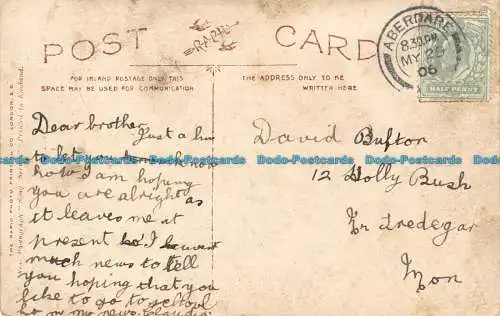 POST
RAPID
CARD
ABERDARE
8.30 PM
MY 26
06
HALF PENNY
FOR INLAND POSTAGE ONLY THIS
SPACE MAY BE USED FOR COMMUNICATION
THE ADDRESS ONLY TO BE
WRITTEN HERE
THE RAPID PHOTO PRINTING CO. LONDON, E.C.
Dear brother Just a line
to let you know
how I am hoping
you are alright as
it leaves me at
present so I havent
much news to tell
you hoping that you
like to go to school
no more news
David Bufton
12 Holly Bush
Nr Tredegar
Mon
Dodo-Postcards Dodo-Postcards Dodo-Postcards Dodo-Postcards Dodo-Postcards